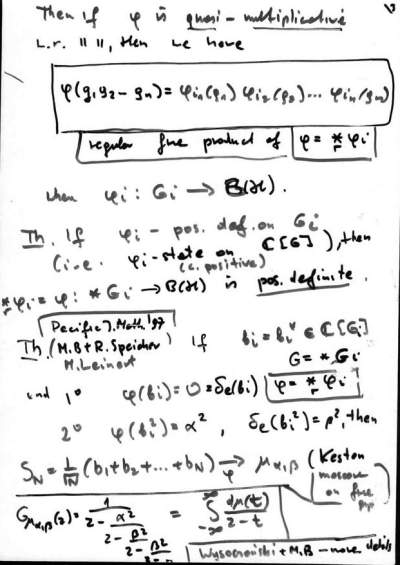 Then if φ is quasi-multiplicative
w.r. "  ", then we have
φ(g₁g₂ - gₙ) = φi₁(g₁) φi₂(g₂)... φiₙ(gₙ)
regular free product of φ = *ᵣ φi
when φi : Gi → B(H).
Th. If φi - pos. def. on Gi
(i.e. φi-state on ℂ[G]), then
(c. positive)
*ᵣφi = φ : *Gi → B(H) is pos. definite.
Pacific J. Math '97
Th (M.B + R. Speicher If bi = bi* ∈ ℂ[Gi]
M. Leinert G = * Gi
and 1° φ(bi) = 0 = δe(bi) φ = *ᵣ φi
2° φ(bi²) = α², δe(bi²) = β², then
S_N = 1/√N (b₁ + b₂ + ... + b_N) →φ μα,β (Kesten
measure
on free
gp)
Gμα,β(z) = 1/(z - α²/(z - β²/(z - β²/(z - = ∫_{-∞}^{∞} dμ(t)/(z - t)
Wysoczański + M.B - more details